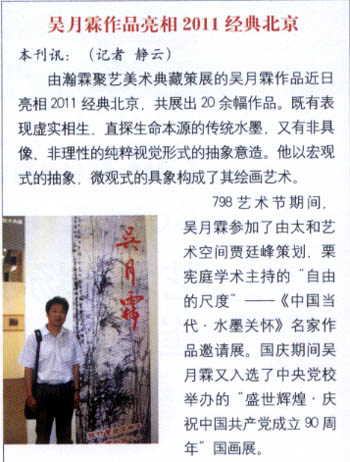 吴月霖作品亮相2011经典北京
本刊讯：（记者 静云）
由瀚霖聚艺美术典藏策展的吴月霖作品近日
亮相2011经典北京，共展出20余幅作品。既有表
现虚实相生、直探生命本源的传统水墨，又有非具
像、非理性的纯粹视觉形式的抽象意造。他以宏观
式的抽象，微观式的具象构成了其绘画艺术。
798艺术节期间，
吴月霖参加了由太和艺
术空间贾廷峰策划，栗
宪庭学术主持的“自由
的尺度”——《中国当
代·水墨关怀》名家作
品邀请展。国庆期间吴
月霖又入选了中央党校
举办的“盛世辉煌·庆
祝中国共产党成立90周
年”国画展。
吴月霖